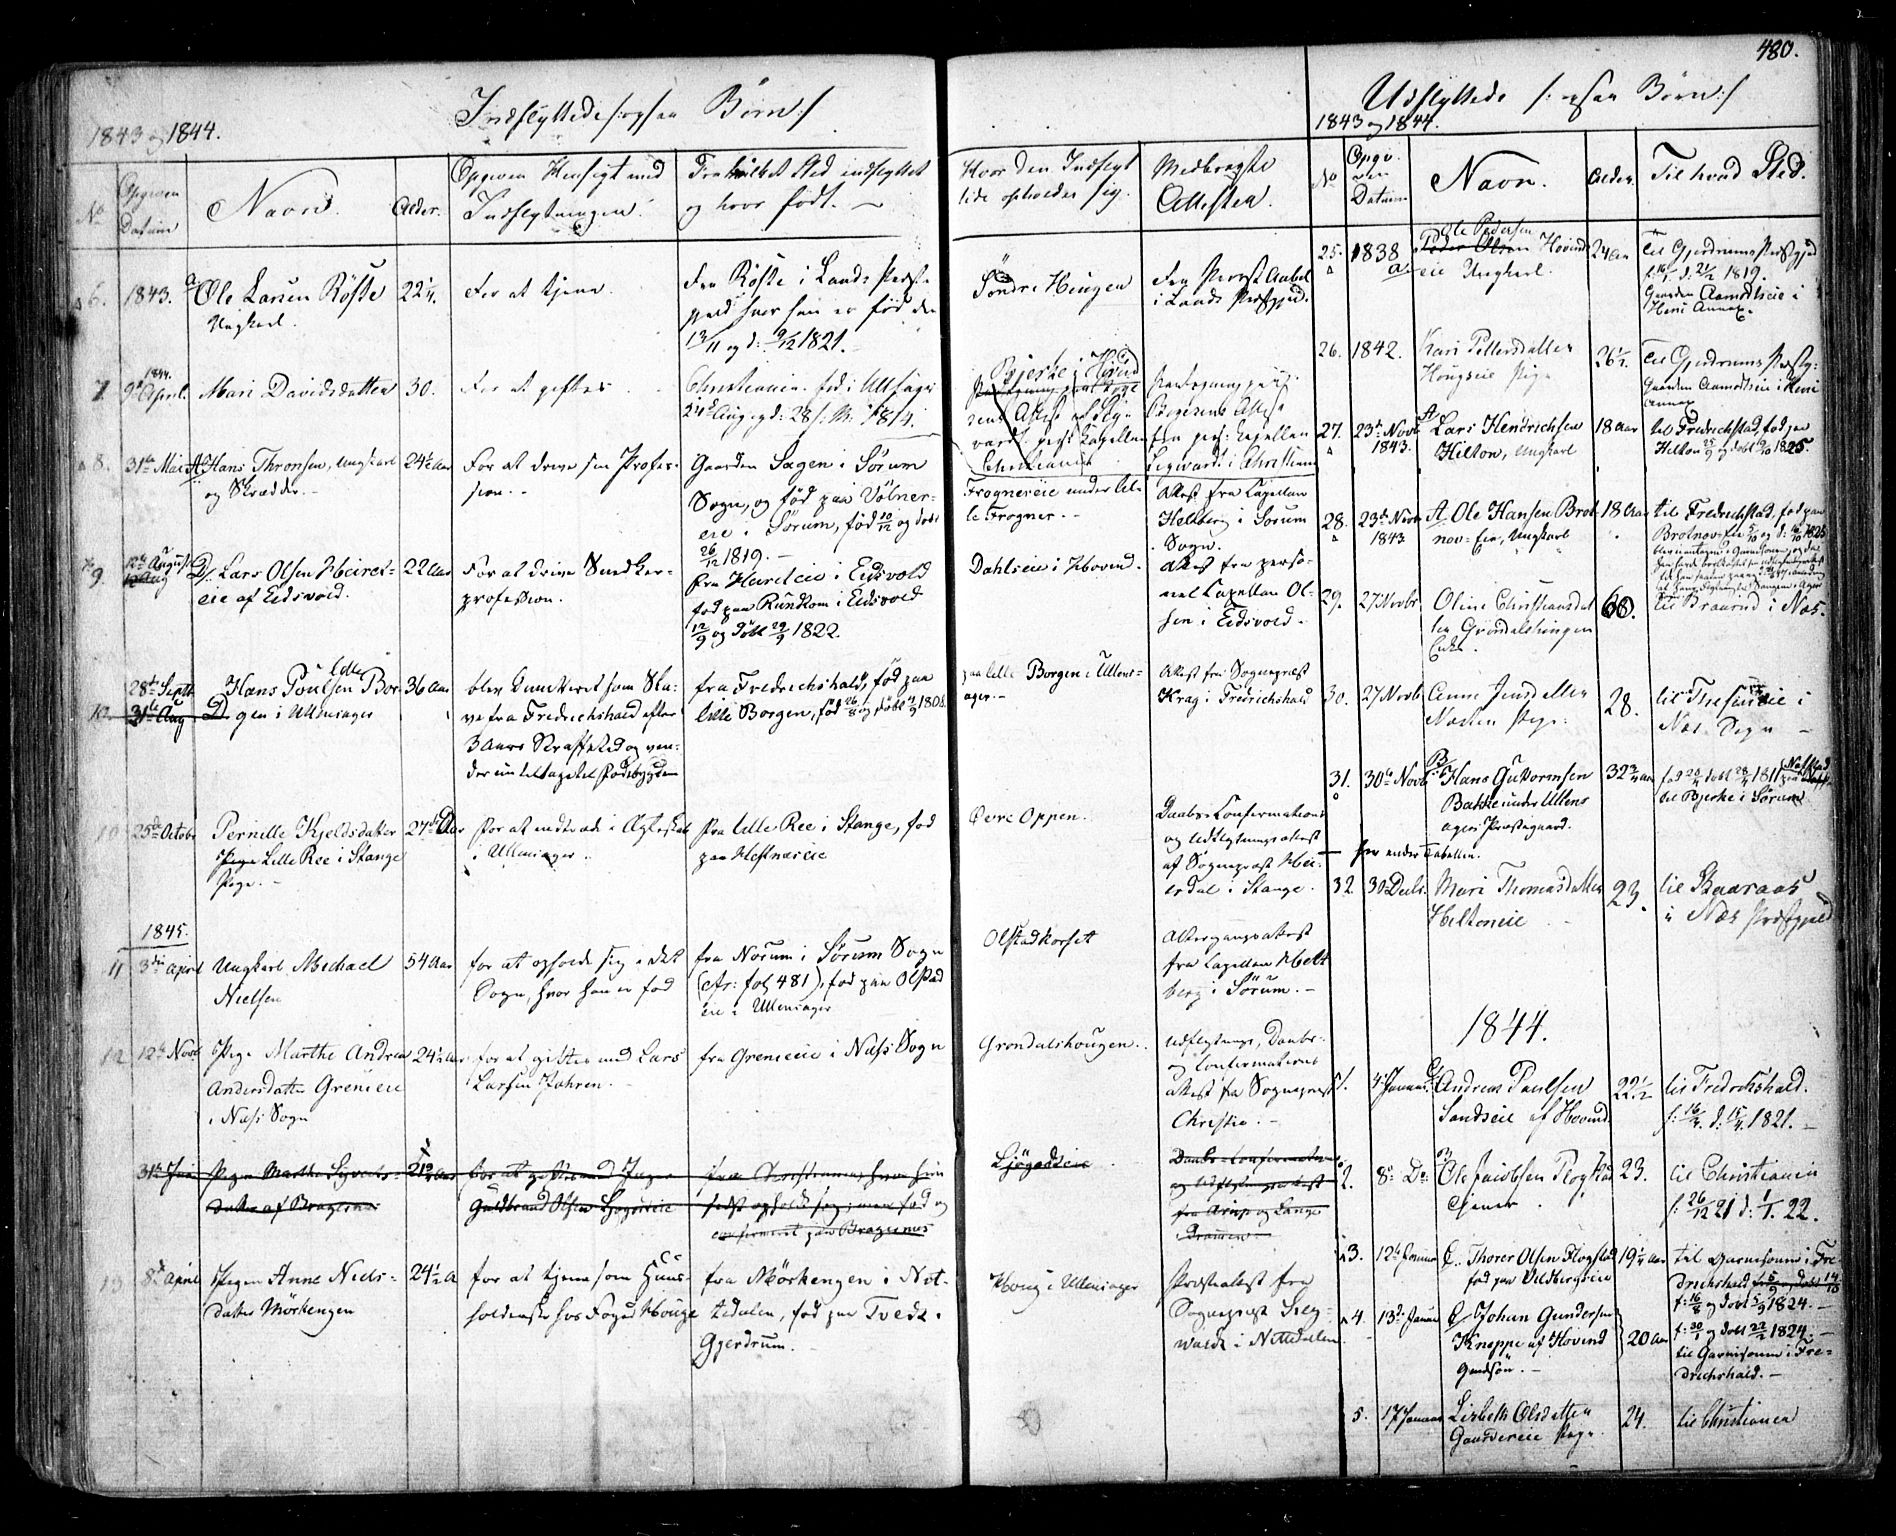 480.
Indflyttede /: ogsaa Børn :/
1843 og 1844.
No
Opgiven Datum
Navn.
Alder.
Opgiven Hensigt med
Indflytningen.
Fra hvilket Sted indflyttet
og hvor født. —
Hvor den Indflyt
tede opholder sig.
Medbragte
Attester.
6.
1843.
Ole Larsen Röste
Ungkarl.
22 1/4.
For at tjene.
Fra Röste i Lands Præste
gjeld hvor han er född den
13/11 og d: 9/12 1821.
Söndre Haugen
Fra Provst Aabel
i Lands Præstegjeld.
7
1844.
9de April.
Mari Davidsdatter
30.
For at giftes
Christiania. fød i Ullensager
24de Aug og d: 28 s. M: 1814.
Bjerke i Hovind
Christiania
8.
31te Mai
Hans Thronsen, Ungkarl
og Skrædder. —
24 1/2 Aar
For at drive sin Profes-
sion. -
Gaarden Sagen i Sörum
Sogn, og fød paa Völner-
eie i Sörum, fød 10/12 og döbt
26/12 1819. —
Frognereie under Lil-
le Frogner. -
Attest fra Capellan
Heltberg i Sorum
Sogn.
9.
12te August
Lars Olsen Heiret-
eie af Eidsvold.
22 Aar
For at drive Snedker-
profession.
fra Heireteie i Eidsvold
fød paa Rundtom i Eidsvold
12/9 og döbt 29/9 1822.
Dahlseie i Hovind.
Attest fra perso-
nel Capellan Ol-
sen i Eidsvold.
28de Septb
31te Aug
Hans Poulsen Lille Bor-
gen i Ullensager
36 Aar
blev dimitteret som Sla-
ve fra Fredrichshald efter
3 Aars Straffetid og ven-
der nu tilbage til Fødebygden
fra Fredrichshald, fød paa
lille Borgen, fød 26/8 og döbt 4/9 1808.
paa lille Borgen i Ullens-
ager. -
Attest fra Sognepræst
Krag i Fredrichshald
10
25de Octobr
Pernille Kjeldsdatter
Lille Ree i Stange
Pige. -
27 Aar
for at indtræde i Ægteskab
i Ullensager.
fra lille Ree i Stange, fød
paa Hestnæseie
Øvre Oppen.
Daabs- Confirmations
og Udflytningsattest
af Sognepræst Hei-
erdal i Stange.
1845.
11
3die April
Ungkarl Michael
Nielsen
54 Aar
for at opholde sig i det
Sogn, hvor han er fød
fra Norum i Sörum Sogn
(cfr: fol 481), fød paa Olstad
eie i Ullensager
Olstadkorset
Altergangsattest
fra Capellan Helt
berg i Sörum. —
12
12te Novb
Pige Marthe Andrea
Andersdatter Greneeie
i Næss Sogn
24 1/2 Aar
for at giftes med Lars
Larsen Johren. -
fra Greneeie i Næss Sogn
Grøndalshougen.
Udflytnings, Daabs-
og Confirmations
attest fra Sognepræst
Christie. -
31te Jan
Pige Marthe Syverts-
datter af Bragernæs
21 Aar
for at giftes med
Guldbrand Olsen Ljøgodseie
fra Christiania, hvor hun
sidst opholdt sig; men fød og
confirmeret paa Bragernæs
Ljøgodseie
Daabs- Confirmations
og Udflytningsattest
fra Arup og Lange
i Drammen.
13
8de April
Pigen Anne Niels-
datter Mörkengen
24 1/2 A
for at tjene som Huus-
holderske hos Foged Houge
fra Mörkengen i Nit-
tedalen, fød paa Tvedt i
Gjerdrum. —
Houg i Ullensager
Præsteattest fra
Sognepræst Sieg-
wardt i Nittedalen
Udflyttede /: ogsaa Børn :/
1843 og 1844.
No
Opgi-
ven
Datum
Navn.
Alder.
Til hvad Sted.
25.
1838
Ole Pedersen
Peder Olsen Hovinds
eie Ungkarl.
24 Aar
Til Gjerdrums Præstegjeld
1819.
Gaarden Aamodtseie i
Heni Annex.
26.
1842.
Kari Pettersdatter
Hougseie Pige
26 1/2.
Til Gjerdrums Præstg:
Gaarden Aamodtseie i Heni
Annex
27.
23de Novb
1843.
Lars Hendrichsen
Hilton, Ungkarl
18 Aar
til Fredrichstad, fød paa
Hilton 25/9 og døbt 9/10 1825.
28.
23de Novbr
1843
Ole Hansen Brot
nov-Eie, Ungkarl
18 Aar
til Fredrichstad, fød paa
Brotnov-Eie 5/10 og d: 16/10 1825
29.
27 Novbr.
Oline Christiansdat
ter Grøndalshougen
Enke.
60.
til Braarud i Næs.
30.
27 Novbr.
Anne Jensdatter
Pige.
28.
Næs Sogn —
31.
30te Novbr
Hans Guttormsen
Bakke under Ullens
agers Præstegaard.
32 3/4 Aar
fød 20/4 døbt 28/4 1811
til Bjerke i Sörum
— før under Tabellen.
32
30 Decbr.
Mari Thomasdatter
Hiltoneie
23.
til Skaaraas
i Næs Præstegjeld
1844.
1.
4de Januar
Andreas Paulsen
Sandseie af Hovind
22 1/2
til Fredrikshald.
f: 16/2. d: 15/4. 1821. —
2.
8de Do
Ole Jacobsen Flogstad
tjener
23.
til Christiania
f: 26/12 21 d: 1/1. 22.
3.
12te Januar
C. Thorer Olsen Flogstad
fød paa Veldbergseie
19 1/4 Aar
til Garnisonen i Fre-
drichshald
f: 16/8 og døbt 5/9 1824. —
4.
13de Januar
Johan Gundersen
Knappe af Hovind
Gaardsøn. —
20 Aar
f: 30/1 og døbt 22/2 1824. —
til Garnisonen i Fre-
drichshald. —
5.
17 Januar
Lisbeth Olsdatter
Gaardereie Pige
24.
til Christiania